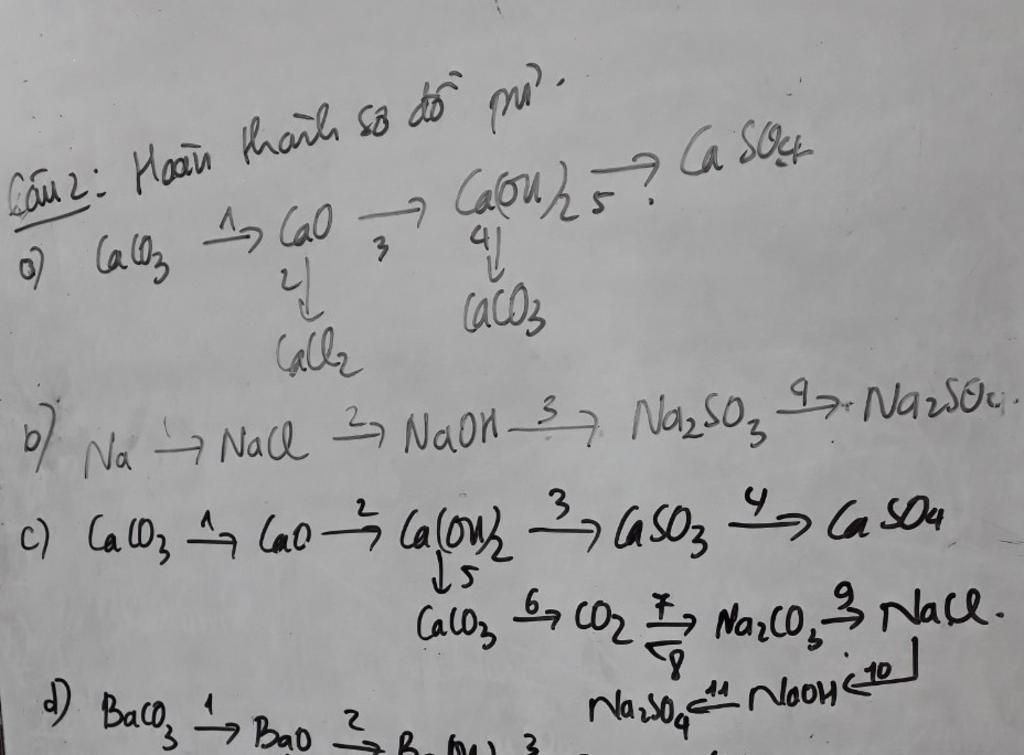 Câu 2: Hoàn thành sơ đồ pư.
a) CaCO3 1→ CaO →3 Ca(OH)2 →5 CaSO4
2↓ 4↓
CaCl2 CaCO3
b) Na 1→ NaCl 2→ NaOH 3→ Na2SO3 4→ Na2SO4.
c) CaCO3 1→ CaO 2→ Ca(OH)2 3→ CaSO3 4→ CaSO4
↓5
CaCO3 6→ CO2 7→ ←8 Na2CO3 9→ NaCl.
Na2SO4 ←11 NaOH ←10
d) BaCO3 1→ BaO 2→ 3